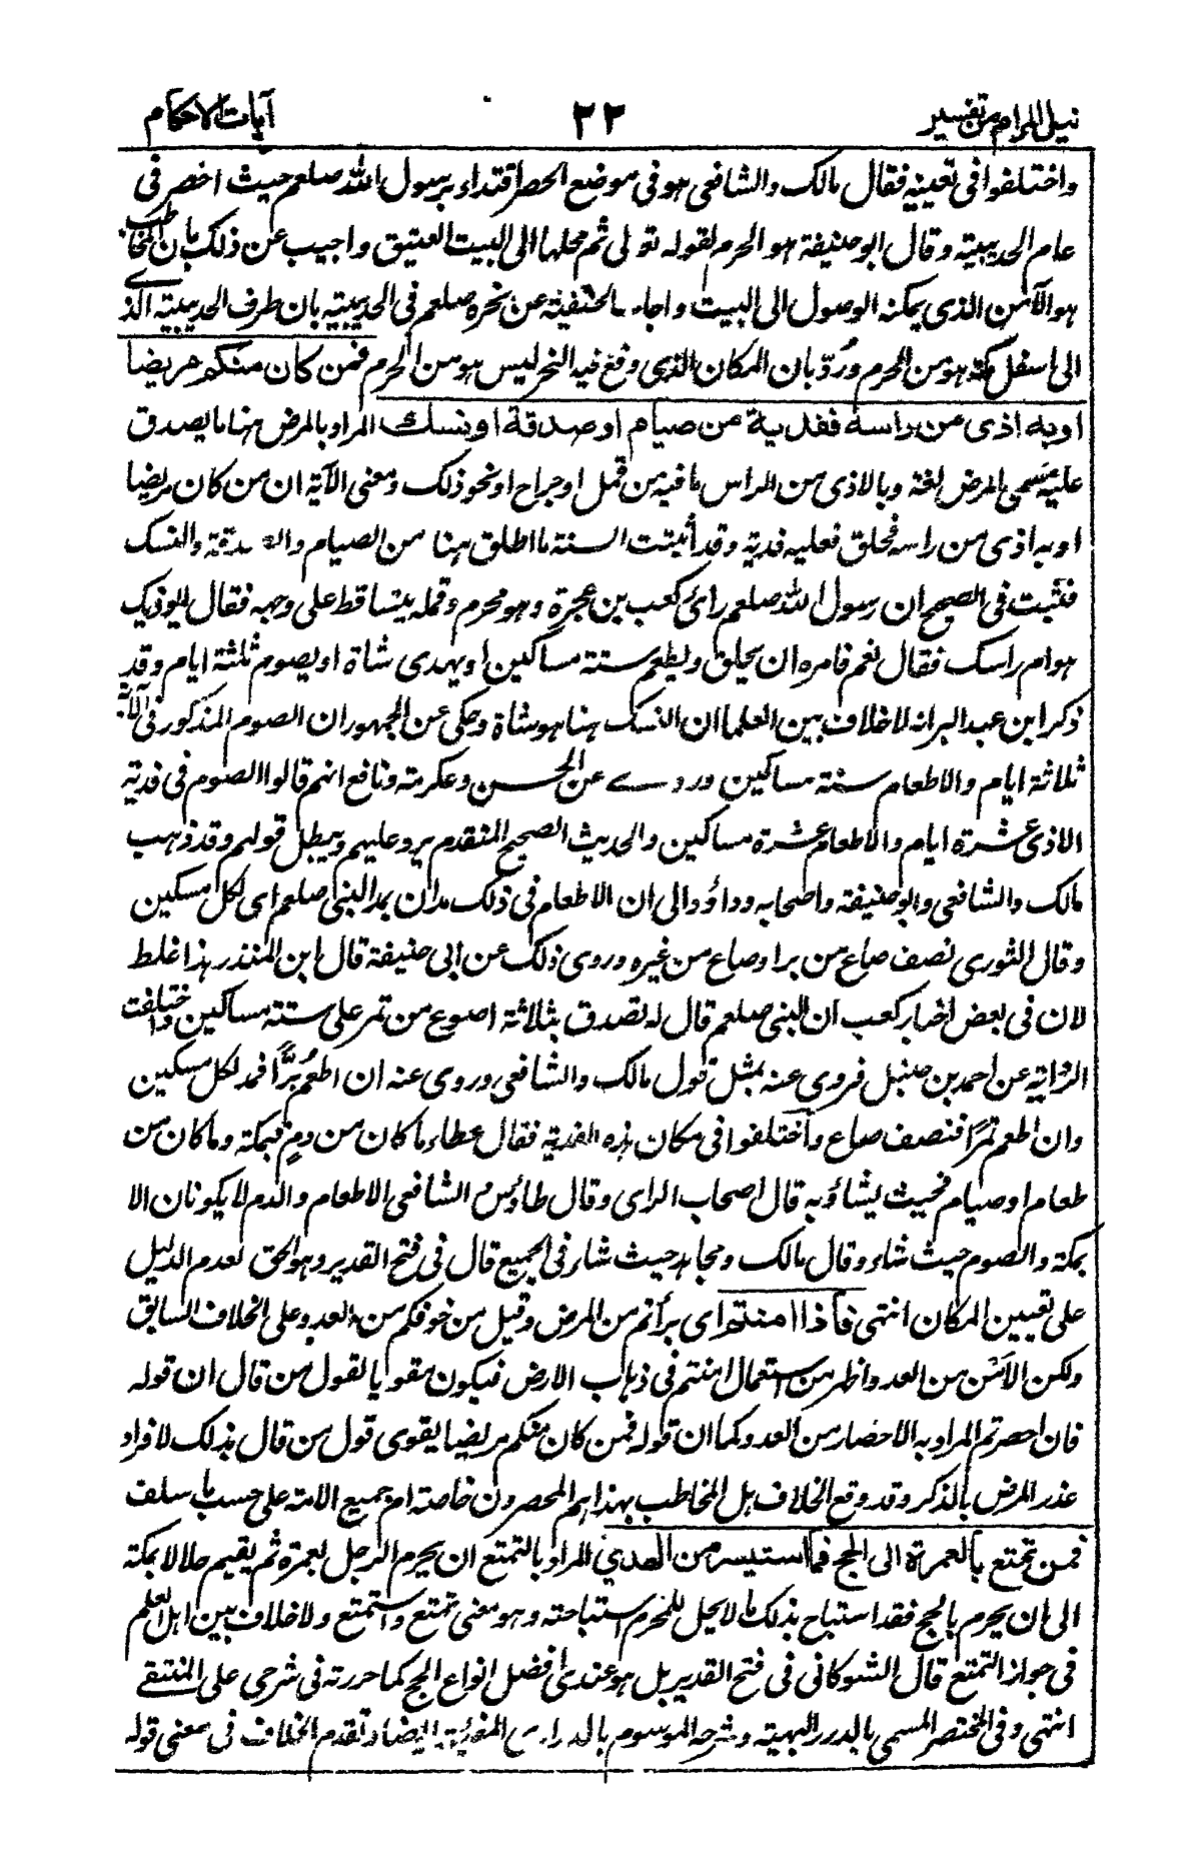 نيل المرام من تفسير ٢٢ آيات الاحكام
واختلفوا في تعيينه فقال مالك والشافعي هو في موضع الحصر اقتداء برسول الله صلعم حيث احصر في
عام الحديبية وقال ابو حنيفة هو الحرم لقوله تعالى ثم محلها الى البيت العتيق واجيب عن ذلك بان المخاطب
هو الآمن الذي يمكنه الوصول الى البيت واجاب الحنفية عن نحره صلعم في الحديبية بان طرف الحديبية الذي
الى اسفل مكة هو من الحرم ورُدّ بان المكان الذي وقع فيه النحر ليس هو من الحرم فمن كان منكم مريضا
او به اذى من راسه ففدية من صيام او صدقة او نسك المراد بالمرض هنا ما يصدق
عليه مسمى المرض لغة وبالاذى من الراس ما فيه من قمل او جراح او نحو ذلك ومعنى الآية ان من كان مريضا
او به اذى من راسه فحلق فعليه فدية وقد أبينت السنة ما اطلق هنا من الصيام والصدقة والنسك
فثبت في الصحيح ان رسول الله صلعم رأى كعب بن عجرة وهو محرم وقمله يتساقط على وجهه فقال ايوذيك
هوام راسك فقال نعم فامره ان يحلق ويطعم ستة مساكين او يهدي شاة او يصوم ثلثة ايام وقد
ذكر ابن عبد البر انه لا خلاف بين العلما ان النسك هنا هو شاة وحكى عن الجمهور ان الصوم المذكور في الآية
ثلاثة ايام والاطعام ستة مساكين وروي عن الحسن وعكرمة ونافع انهم قالوا الصوم في فدية
الاذى عشرة ايام والاطعام عشرة مساكين والحديث الصحيح المتقدم يرد عليهم ويبطل قولهم وقد ذهب
مالك والشافعي وابو حنيفة واصحابه وداؤد الى ان الاطعام في ذلك مدان بمد النبي صلعم اى لكل مسكين
وقال الثوري نصف صاع من بر او صاع من غيره وروى ذلك عن ابى حنيفة قال ابن المنذر هذا غلط
لان في بعض اخبار كعب ان النبي صلعم قال له تصدق بثلاثة اصوع من تمر على ستة مساكين واختلفت
الرواية عن احمد بن حنبل فروى عنه بمثل قول مالك والشافعي وروى عنه ان اطعم بُرًّا فمد لكل مسكين
وان اطعم تمرًا فنصف صاع واختلفوا في مكان هذه الفدية فقال عطاء ما كان من دمٍ فبمكة وما كان من
طعام او صيام فحيث يشاؤ به قال اصحاب الراى وقال طاؤس والشافعي الاطعام والدم لا يكونان الا
بمكة والصوم حيث شاء وقال مالك ومجاهد حيث شاء في الجميع قال في فتح القدير وهو الحق لعدم الدليل
على تعيين المكان انتهى فاذا امنتم اى برأتم من المرض وقيل من خوفكم من العدو على الخلاف السابق
ولكن الامن من العدو اظهر من استعمال امنتم في ذهاب الارض فيكون مقويا لقول من قال ان قوله
فان احصرتم المراد به الاحصار من العدو كما ان قوله فمن كان منكم مريضا يقوى قول من قال بذلك لافراد
عذر المرض بالذكر وقد وقع الخلاف هل المخاطب بهذا هم المحصرون خاصة ام جميع الامة على حسب ما سلف
فمن تمتع بالعمرة الى الحج فما استيسر من الهدي المراد بالتمتع ان يحرم الرجل بعمرة ثم يقيم حلالا بمكة
الى ان يحرم بالحج فقد استباح بذلك ما لا يحل للمحرم استباحته وهو معنى تمتع واستمتع ولا خلاف بين اهل العلم
في جواز التمتع قال الشوكاني في فتح القدير بل هو عندى افضل انواع الحج كما حررته في شرحى على المنتقى
انتهى وفي المختصر المسمى بالدرر البهية وشرحه الموسوم بالدرارى المضيئة ايضا وتقدم الخلاف في معنى قوله